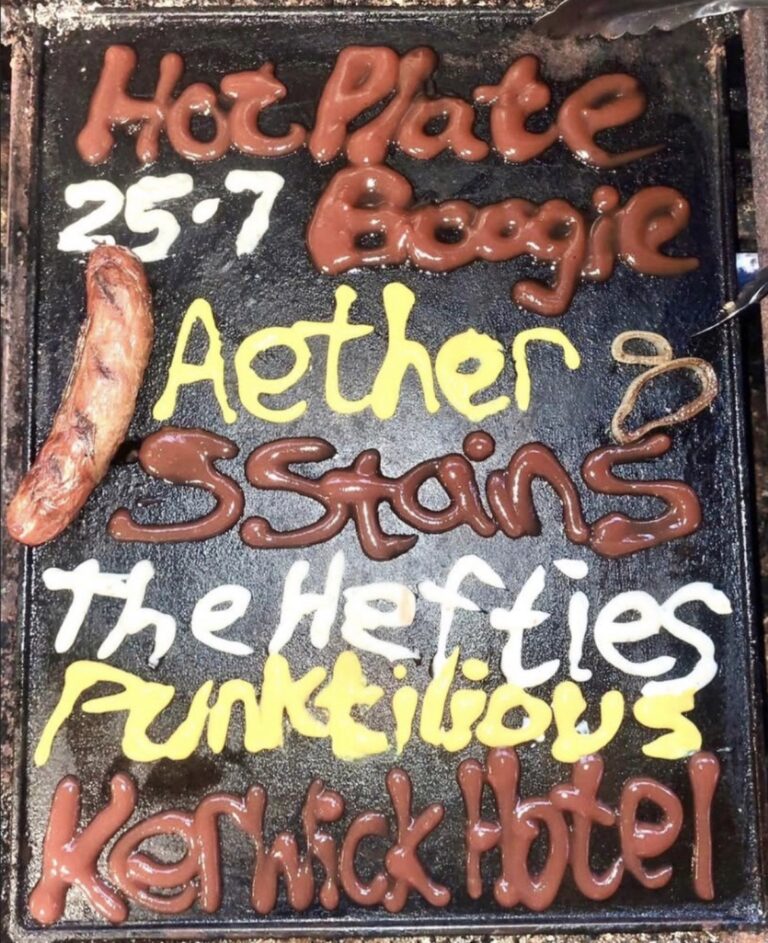 Hot Plate
25·7 Boogie
Aether
SStains
The Hefties
Punktilious
Kerwick Hotel